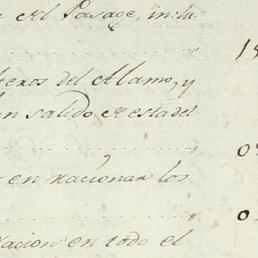 el Pasage, inclu
1
heros del Alamo, y
an salido de esta del
0
en racionar los
0
racion en todo el